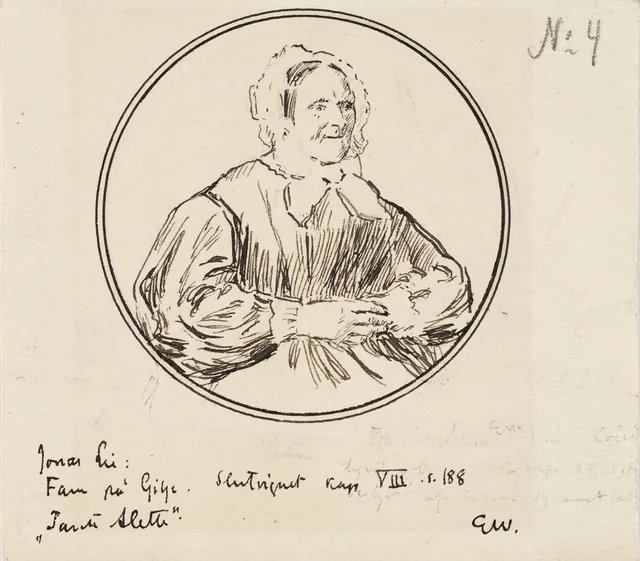 No: 4
Jonas Lie:
Fam på Gilje. Slutvignet kap VIII s. 188
„Tante Alette".
EW.